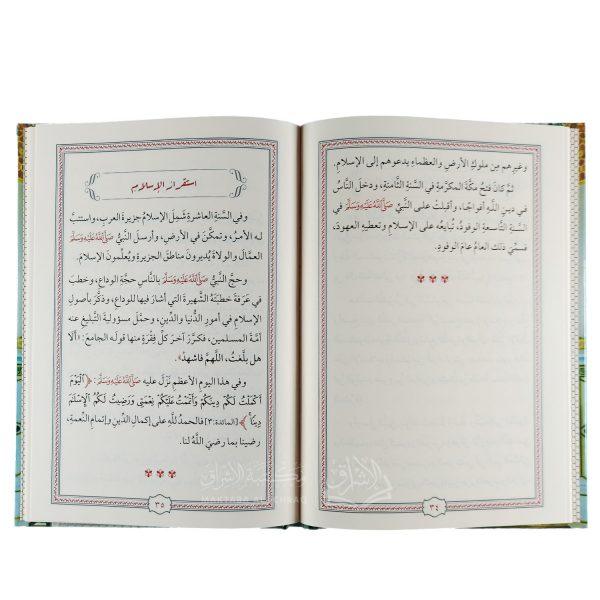 وغيرِهم مِن ملوكِ الأرضِ والعظماءِ يدعوهم إلى الإسلامِ.
ثمَّ كانَ فتحُ مكَّةَ المكرَّمةِ في السَّنةِ الثَّامنةِ، ودخلَ النَّاسُ
في دينِ اللَّهِ أفواجًا، وأقبلَتْ على النَّبيِّ ﷺ في
السَّنةِ التَّاسعةِ الوفودُ، تُبايعُه على الإسلامِ وتعطيهِ العهودَ،
فسمِّيَ ذلك العامُ عامَ الوفودِ.
٣٤
استقرارُ الإسلامِ
وفي السَّنةِ العاشرةِ شَمِلَ الإسلامُ جزيرةَ العربِ، واستتبَّ
لـه الأمرُ، وتمكَّنَ في الأرضِ، وأرسلَ النَّبيُّ ﷺ
العمَّالَ والولاةَ يُديرونَ مناطقَ الجزيرةِ ويُعلِّمونَ الإسلامَ.
وحجَّ النَّبيُّ ﷺ بالنَّاسِ حجَّةَ الوداعِ، وخطبَ
في عَرَفةَ خطبتَهُ الشَّهيرةَ التي أشارَ فيها للوداعِ، وذكَّرَ بأصولِ
الإسلامِ في أمورِ الدُّنيا والدِّينِ، وحمَّلَ مسؤوليةَ التَّبليغِ عنه
أمَّةَ المسلمين، فكرَّرَ آخرَ كلِّ فِقْرَةٍ منها قولَه الجامعَ: «أَلَا
هل بلَّغتُ، اللَّهمَّ فاشهدْ».
وفي هذا اليومِ الأعظمِ نزَلَ عليه ﷺ: ﴿ٱلۡيَوۡمَ
أَكۡمَلۡتُ لَكُمۡ دِينَكُمۡ وَأَتۡمَمۡتُ عَلَيۡكُمۡ نِعۡمَتِي وَرَضِيتُ لَكُمُ ٱلۡإِسۡلَٰمَ
دِينٗا﴾ [المائدة:٣] فالحمدُ للَّهِ على إكمالِ الدِّينِ وإتمامِ النِّعمةِ،
رضينا بما رضيَ اللَّهُ لنا.
٣٥
مكتبة الإشراق
MAKTABA AL-ISHRAQ